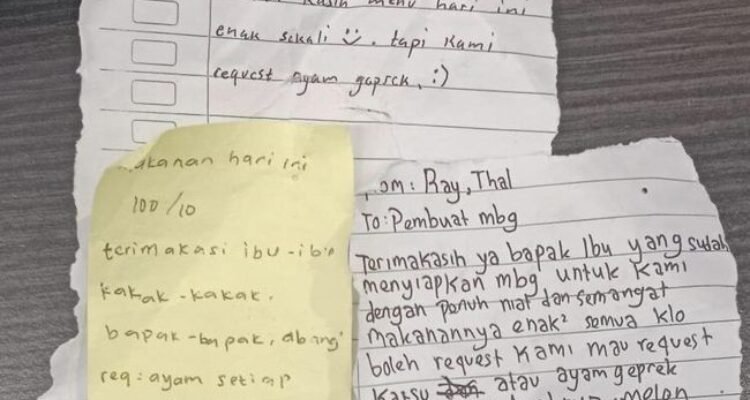 kasih menu hari ini
enak sekali :) . tapi kami
request ayam geprek, :)
makanan hari ini
100/10
terimakasi ibu-ibu
kakak-kakak,
bapak-bapak, abang"
req: ayam setiap
From: Ray, Thal
To: Pembuat mbg
Terimakasih ya bapak Ibu yang sudah
menyiapkan mbg untuk kami
dengan penuh niat dan semangat
makanannya enak² semua klo
boleh request kami mau request
katsu atau ayam geprek
melon